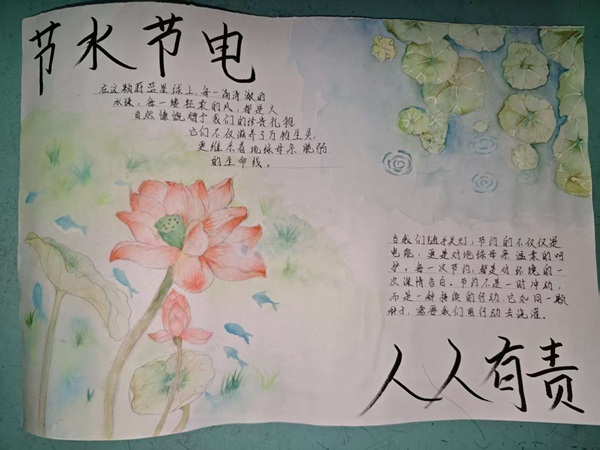 节水节电
在这颗蔚蓝星球上,每一滴清澈的
水滴,每一缕轻柔的风,都是大
自然慷慨赠于我们的珍贵礼物
它们不仅滋养了万物生灵,
更维系着地球母亲脆弱
的生命线。
当我们随手关灯,节约的不仅仅是
电能,更是对地球母亲温柔的呵
护。每一次节约,都是对环境的一
次深情告白。节约不是一时冲动,
而是一种持续的行动,它如同一颗
种子,需要我们用行动去浇灌。
人人有责